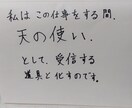 私は この仕事をする間、
天の使い、
として、受信する
道具と化すのです。